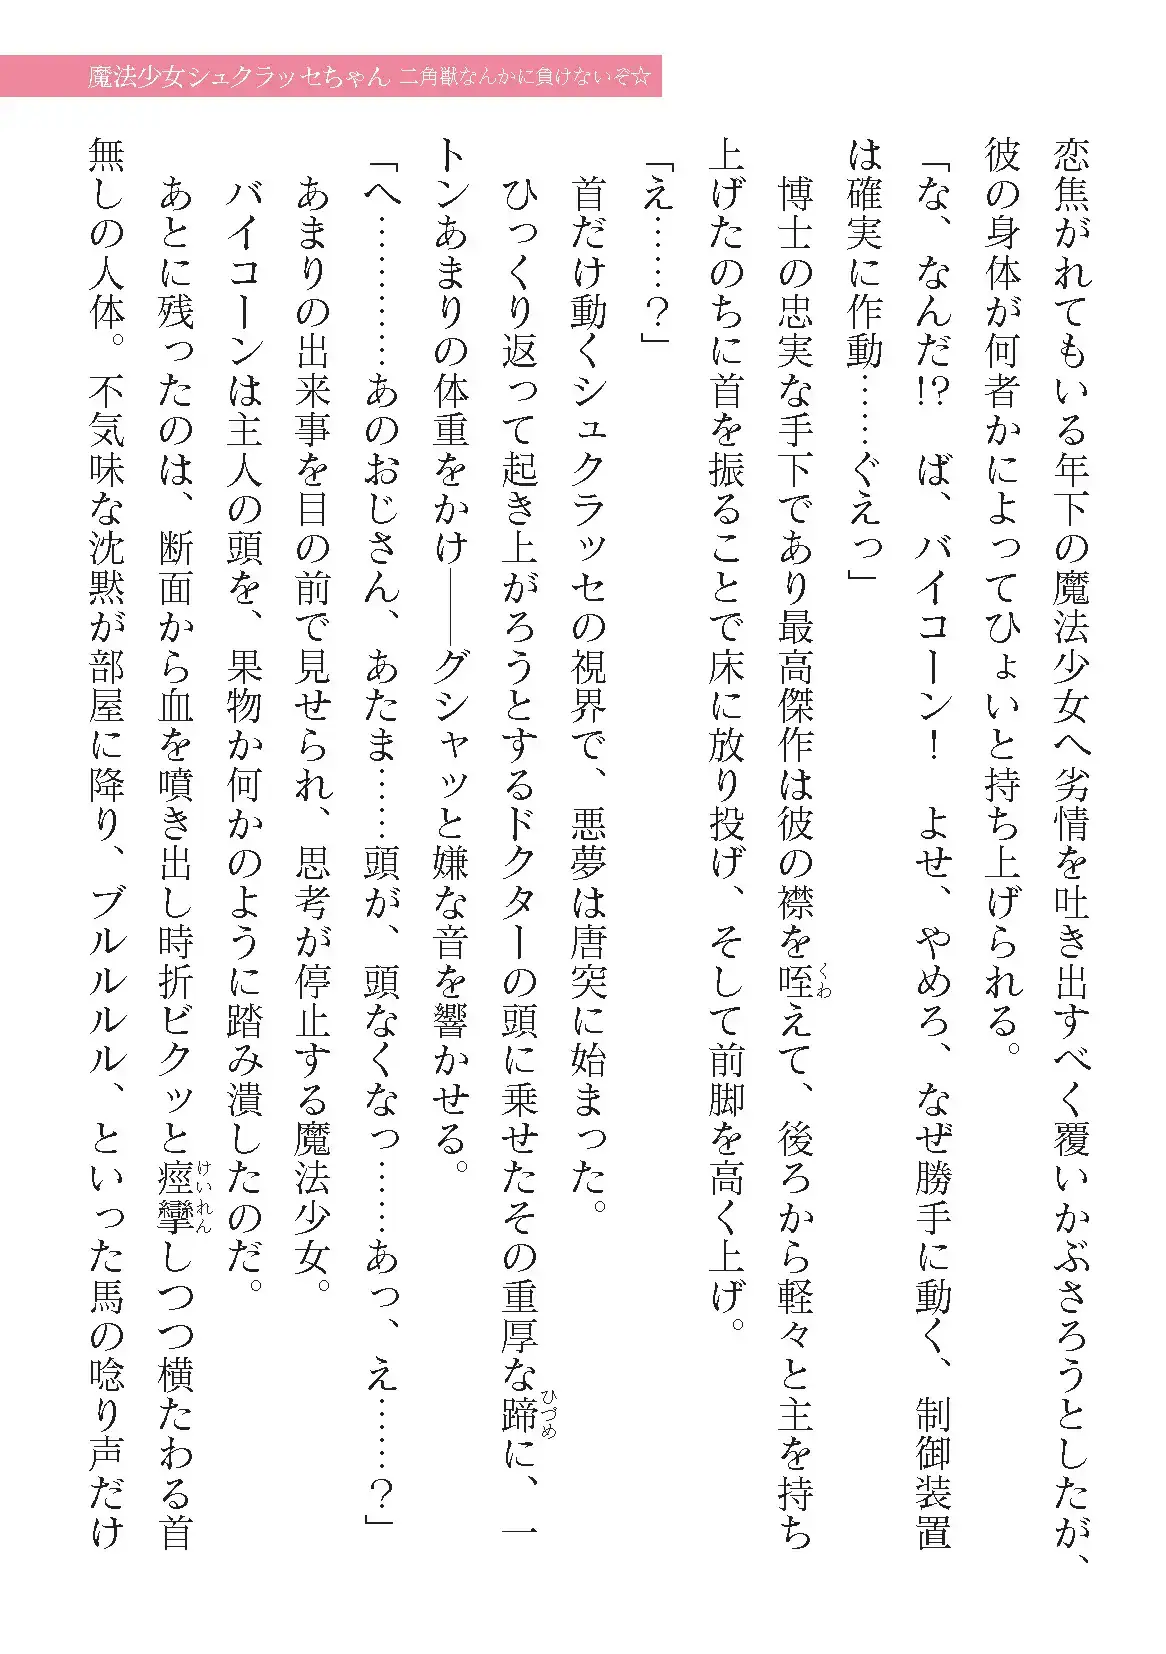 魔法少女シュクラッセちゃん 二角獣なんかに負けないぞ☆
恋焦がれてもいる年下の魔法少女へ劣情を吐き出すべく覆いかぶさろうとしたが、
彼の身体が何者かによってひょいと持ち上げられる。
「な、なんだ!?　ば、バイコーン！　よせ、やめろ、なぜ勝手に動く、制御装置
は確実に作動……ぐえっ」
　博士の忠実な手下であり最高傑作は彼の襟を咥えて、後ろから軽々と主を持ち
くわ
上げたのちに首を振ることで床に放り投げ、そして前脚を高く上げ。
「え……？」
　首だけ動くシュクラッセの視界で、悪夢は唐突に始まった。
　ひっくり返って起き上がろうとするドクターの頭に乗せたその重厚な蹄に、一
ひづめ
トンあまりの体重をかけ――グシャッと嫌な音を響かせる。
「へ…………あのおじさん、あたま……頭が、頭なくなっ……あっ、え……？」
　あまりの出来事を目の前で見せられ、思考が停止する魔法少女。
　バイコーンは主人の頭を、果物か何かのように踏み潰したのだ。
　あとに残ったのは、断面から血を噴き出し時折ビクッと痙攣しつつ横たわる首
けいれん
無しの人体。不気味な沈黙が部屋に降り、ブルルルル、といった馬の唸り声だけ